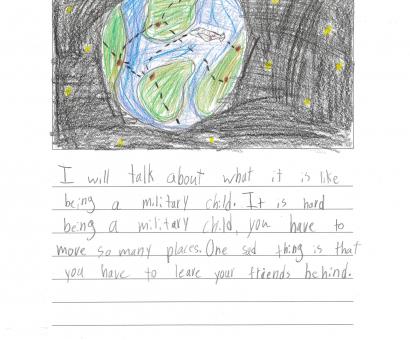 I will talk about what it is like
being a military child. It is hard
being a military child, you have to
move so many places. One sad thing is that
you have to leave your friends behind.